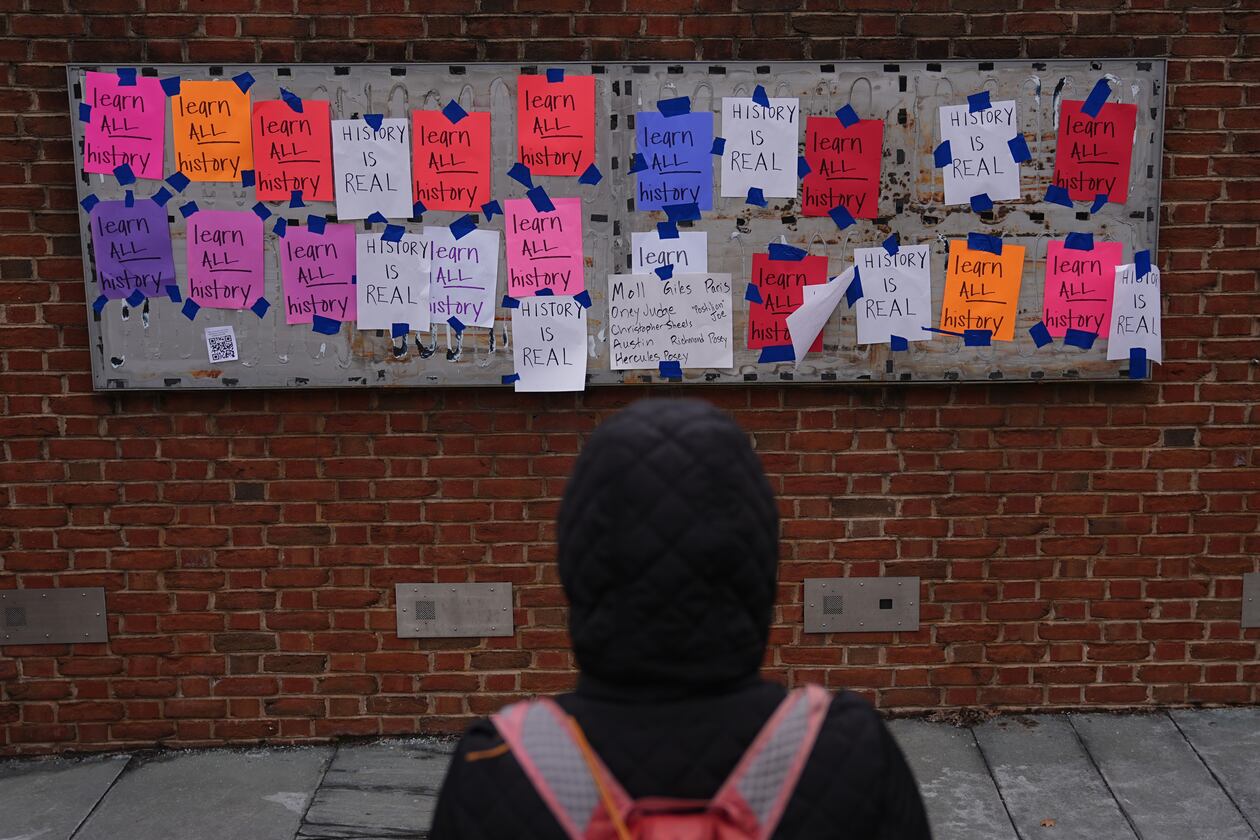 learn
ALL
history
learn
ALL
history
learn
ALL
history
HISTORY
IS
REAL
learn
ALL
history
learn
ALL
history
learn
ALL
history
HISTORY
IS
REAL
learn
ALL
history
HISTORY
IS
REAL
learn
ALL
history
learn
ALL
history
learn
ALL
history
learn
ALL
history
HISTORY
IS
REAL
learn
ALL
history
learn
ALL
history
HISTORY
IS
REAL
learn
Moll Giles Paris
Oney Judge "Postilion" Joe
Christopher Sheels
Austin Richmond Posey
Hercules Posey
learn
ALL
HISTORY
IS
REAL
learn
ALL
history
learn
ALL
history
HISTORY
IS
REAL